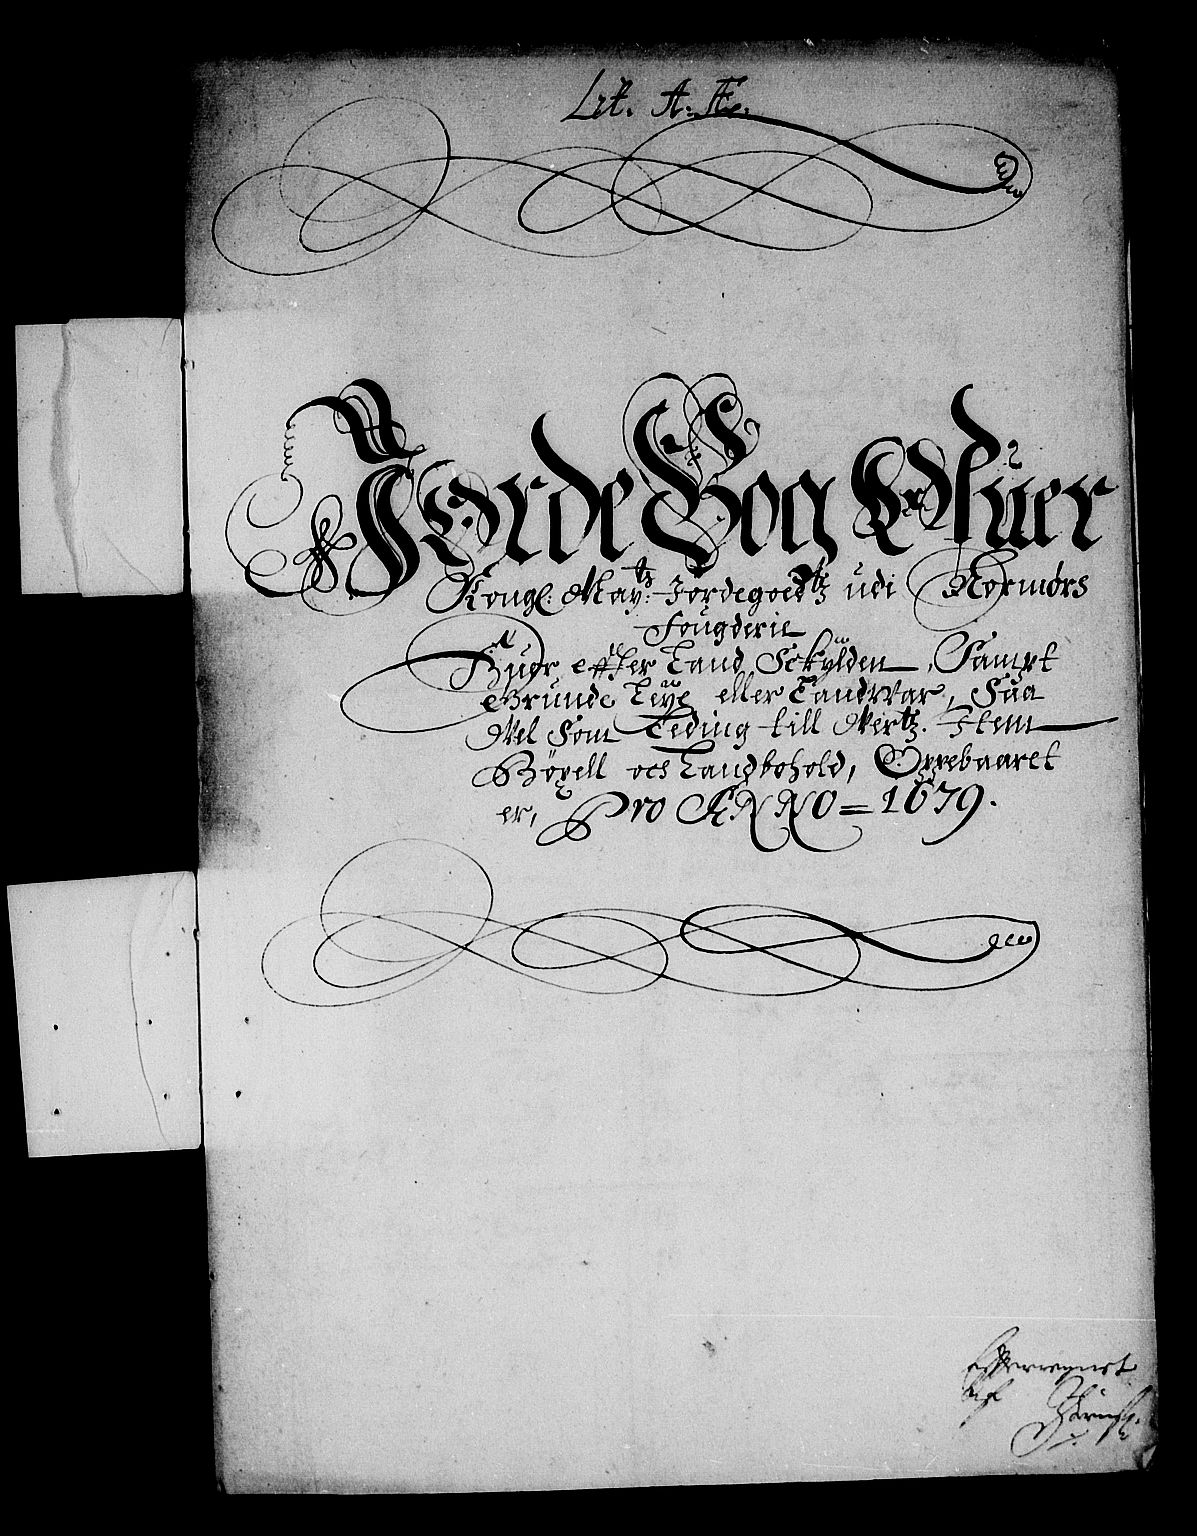 Lit. A. Æ.
Jorde Bog Ofuer
Kongl: May:tz Jordegoedtz udi Normørs
Fougderie
Huor effter Land Sckÿlden, Sampt
Grunde Leÿe eller Landwar, Saa
Vel Som Leding till Vertz. Item
Böxell och Landbohold, Oppebaaret
er, Pro ANNO = 1679.
Efterregnet